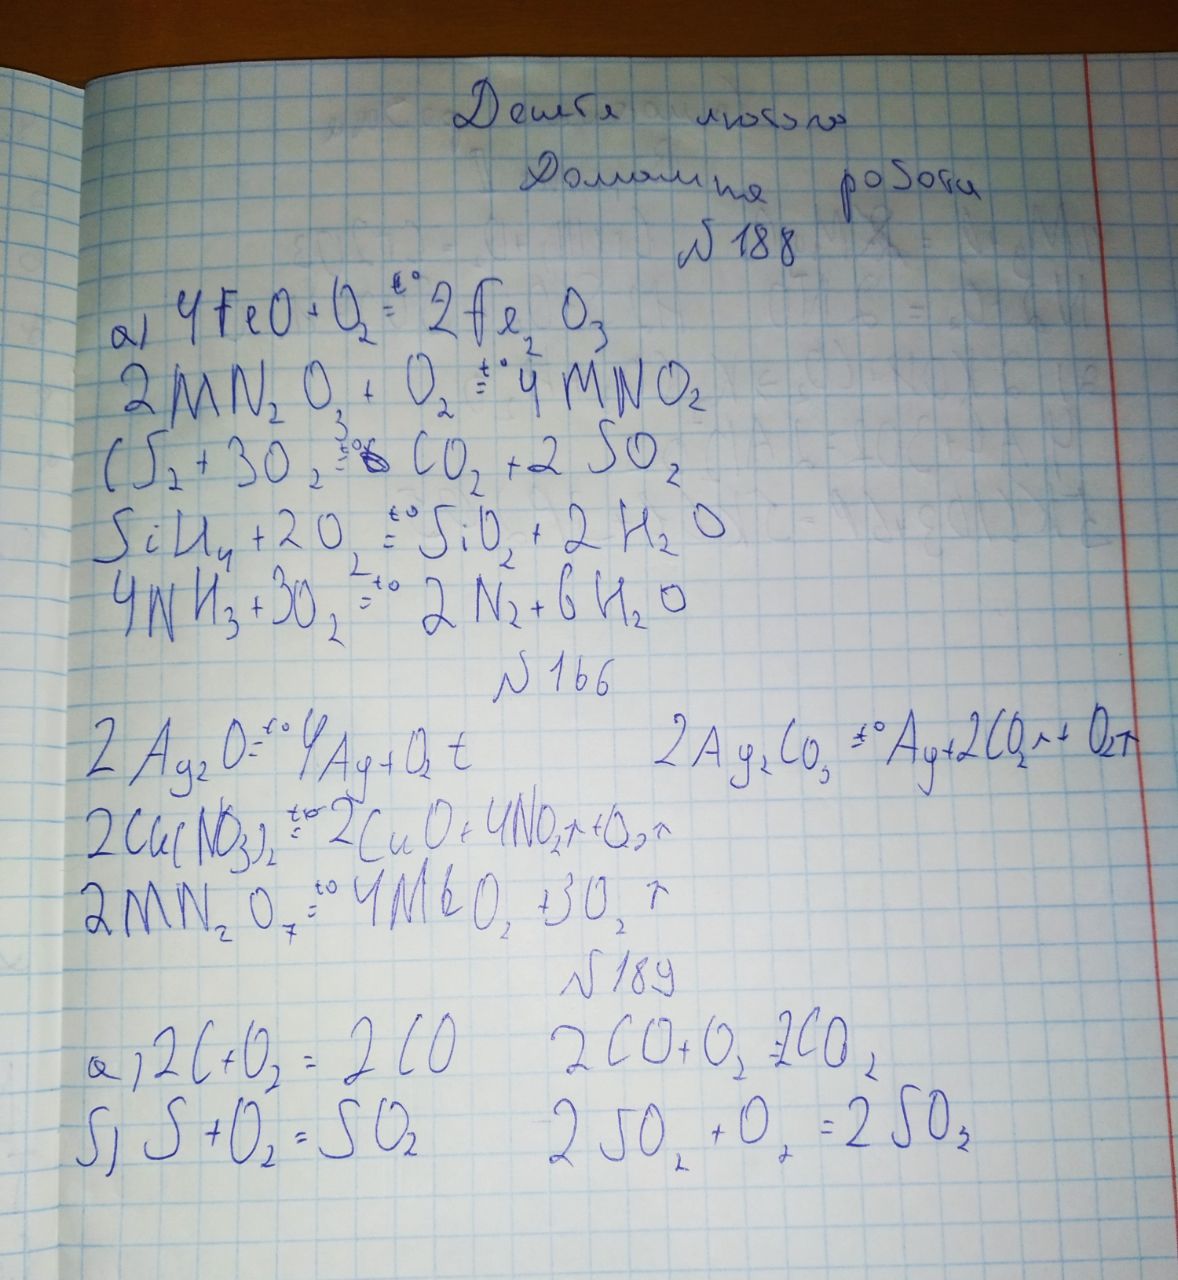 Десяте лютого
Домашня робота
№188
а) 4FeO + O₂ =t° 2Fe₂O₃
2MN₂O₃ + O₂ =t° 4MNO₂
CS₂ + 3O₂ =t° CO₂ + 2SO₂
SiH₄ + 2O₂ =t° SiO₂ + 2H₂O
4NH₃ + 3O₂ =t° 2N₂ + 6H₂O
№166
2Ag₂O =t° 4Ag + O₂↑ 2Ag₂CO₃ =t° Ag + 2CO₂↑ + O₂↑
2Cu(NO₃)₂ =t° 2CuO + 4NO₂↑ + O₂↑
2MN₂O₇ =t° 4MNO₂ + 3O₂↑
№189
а) 2C + O₂ = 2CO 2CO + O₂ = 2CO₂
б) S + O₂ = SO₂ 2SO₂ + O₂ = 2SO₃